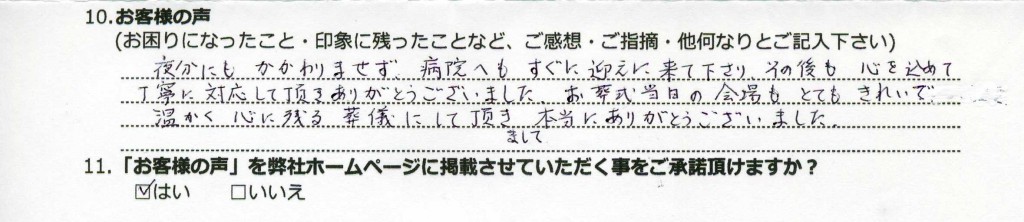 10.お客様の声
(お困りになったこと・印象に残ったことなど、ご感想・ご指摘・他何なりとご記入下さい)
夜分にもかかわりませず、病院へもすぐに迎えに来て下さり、その後も心を込めて
丁寧に対応して頂きありがとうございました。お葬式当日の会場もとてもきれいで
温かく心に残る葬儀にして頂き本当にありがとうございました。
まして
11.「お客様の声」を弊社ホームページに掲載させていただく事をご承諾頂けますか？
☑はい □いいえ